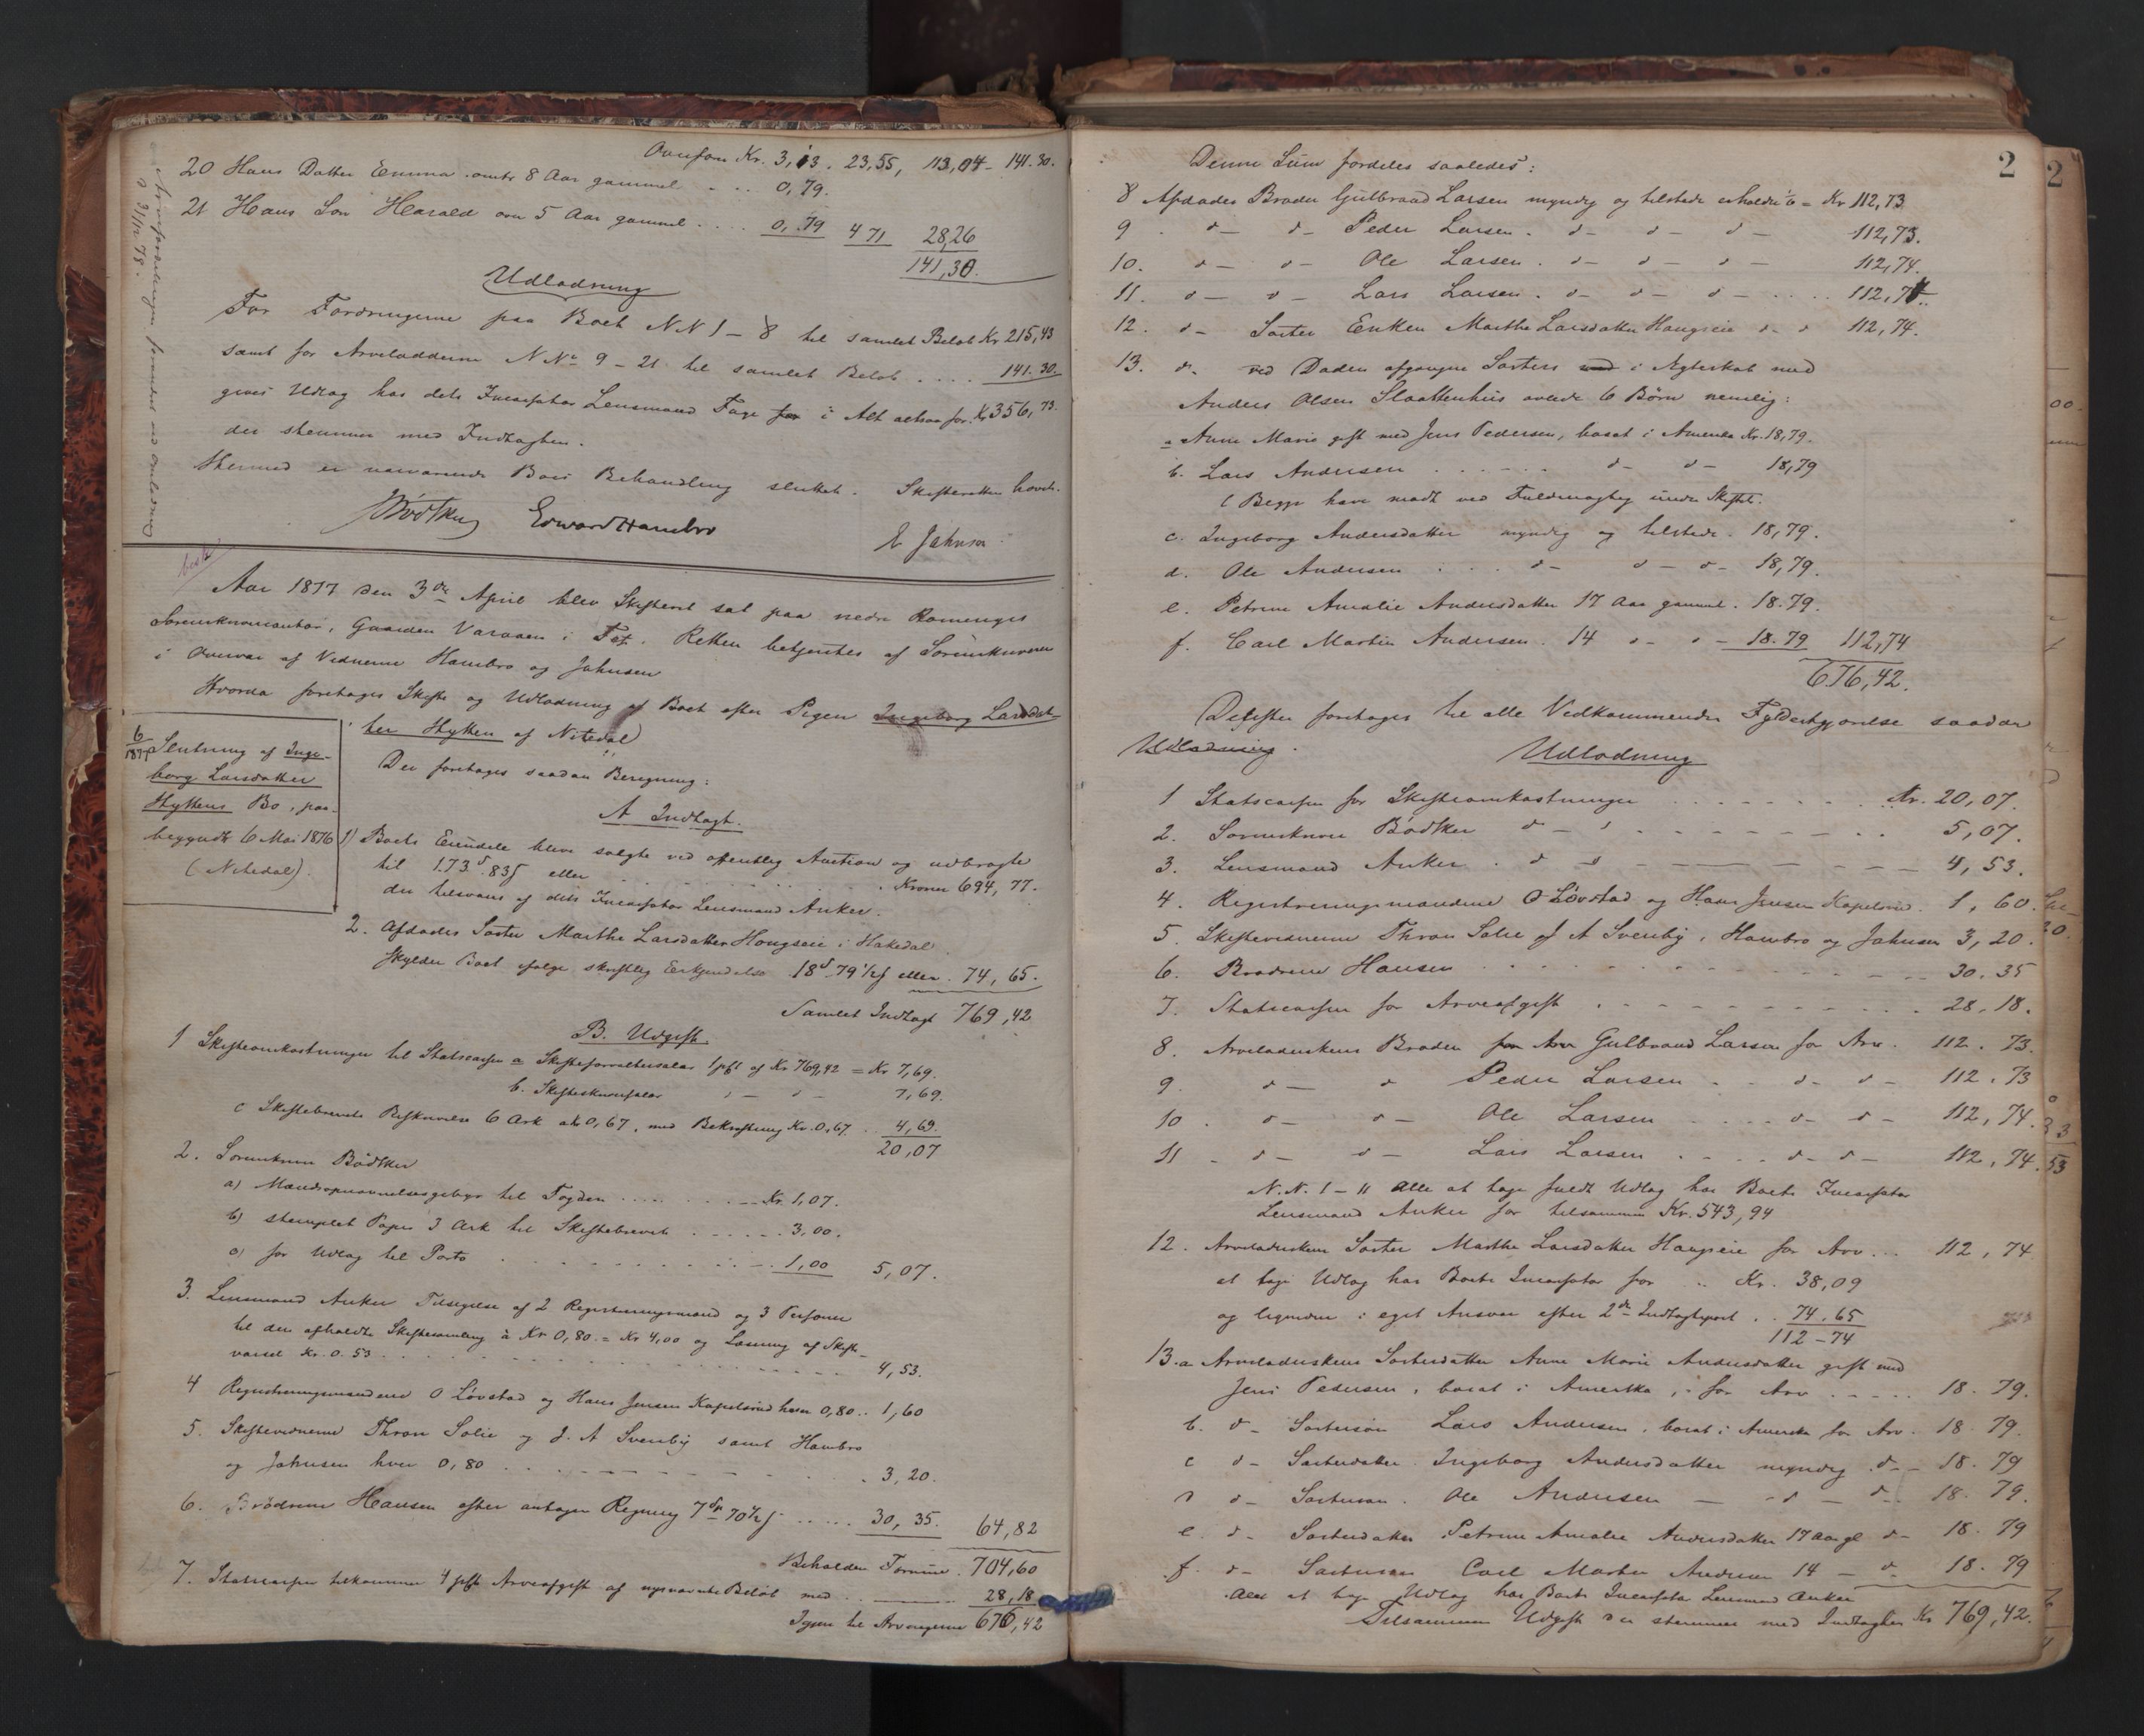 Ovenfor Kr. 3,13. 23,55, 113,04 - 141.30.
20 Hans Datter Emma omtr 8 Aar gammel . . . 0,79.
21 Hans Søn Harald om 5 Aar gammel . . . . 0,79 4 71 28,26
141,30.
Udlodning
For Fordringerne paa Boet NN 1 - 8 til samlet Beløb Kr 215,43
samt for Arvelodderne N No 9 - 21 til samlet Beløb . . . . 141.30.
gives Udlag hos dets Incassator Lensmand Fage for i Alt altsaa for Kr 356,73.
der stemmer med Indtægten.
Hermed er nærværende Boes Behandling sluttet. Skifteretten hævet.
Bödtker Edward Hambro
E Jahnsen
Arvefordelingen forandret ved Omlodning
d 31/12 78.
Aar 1877 den 3die April blev Skifteret sat paa nedre Romeriges
Sorenskrivercontor, Gaarden Varaaen i Fet. Retten betjentes af Sorenskriveren
i Overvær af Vidnerne Hambro og Jahnsen
Hvorda foretages Skifte og Udlodning af Boet efter Pigen Ingeborg Larsdat-
ter Hytten af Nitedal
6
1877
Slutning af Inge-
borg Larsdatter
Hyttens Bo, paa-
begyndt 6 Mai 1876
(Nitedal).
Der foretages saadan Beregning:
A Indtægt.
1) Boets Eiendele bleve solgte ved offentlig Auction og udbragte
til 173 d. 83 ß eller . . . . Kroner 694,77.
der tilsvares af dets Incassator Lensmand Anker.
2. Afdødes Søster Marthe Larsdatter Hougseie i Hakedal
skylder Boet ifølge skriftlig Erkjendelse 18 d 79 1/2 ß eller . 74,65.
Samlet Indtægt 769,42
B. Udgift.
1 Skifteomkostninger til Statscassen a Skifteforvaltersalær 1 pCt af Kr 769,42 = Kr 7,69.
b. Skifteskriversalær - - 7,69.
c Skiftebrevets Beskrivelse 6 Ark a 0,67, med Bekræftning Kr. 0,67 . . 4,69.
20,07
2. Sorenskriver Bödtker
a) Mændsopnævnelsesgebyr til Fogden . . . . . . Kr. 1,07.
b) stemplet Papir 3 Ark til Skiftebrevet . . . . . . 3,00.
c) for Udlæg til Porto . . . . . . . 1,00 5,07.
3. Lensmand Anker Tilsigelse af 2 Registreringsmænd og 3 Personer
til den afholdte Skiftesamling à Kr 0,80 = Kr 4,00 og Læsning af Skifte-
varsel Kr. 0.53 . . . . . . . . . . 4,53.
4 Registreringsmændene O Løvstad og Hans Jensen Kapelsrud hver 0,80 . . 1,60
5. Skiftevidnerne Thron Solie og J. A Svenby samt Hambro
og Jahnsen hver 0,80 . . . . . . . . 3,20.
6. Brødrene Hansen efter antagen Regning 7 Sp 70 1/2 ß . . . . . 30,35. 64,82
Beholden Formue . 704,60
7. Statscassen tilkommer 4 pCt Arveafgift af nysnævnte Beløb med . . 28,18
Igjen til Arvingerne 676,42
2
Denne Sum fordeles saaledes:
8 Afdødes Broder Gulbrand Larsen myndig og tilstede erholder 1/6 = Kr 112,73
9 . d - d - Peder Larsen . d - d - d - 112,73.
10. d - d - Ole Larsen . d - d - d - 112,74.
11. d - d - Lars Larsen . d - d - d - . . . . 112,74.
12. d - Søster Enken Marthe Larsdatter Hougseie d - d 112,74.
13. d - ved Døden afgangne Søsters med i Ægteskab med
Anders Olsen Slaattenhus avlede 6 Børn nemlig:
a Anne Marie gift med Jens Pedersen, bosat i Amerika Kr. 18,79.
b. Lars Andersen . . . . . . d - d - 18,79
(Begge have mødt ved Fuldmægtig under Skiftet.
c. Ingeborg Andersdatter myndig og tilstede . 18,79.
d. Ole Andersen . . . d - d - d - 18,79.
e. Petrine Amalie Andersdatter 17 Aar gammel . 18.79.
f. Carl Martin Andersen . 14 d - d - 18.79 112,74
676,42.
Derefter foretages til alle Vedkommendes Fyldestgjørelse saadan
Udlodning .
Udlodning
1 Statscassen for Skifteomkostninger . . . . . . . Kr. 20,07.
2. Sorenskriver Bödtker d - . . . . . . . 5,07.
3. Lensmand Anker . d - 4,53.
4. Registreringsmændene O Løvstad og Hans Jensen Kapelsrud . 1,60.
5. Skiftevidnerne Thron Solie og A Svenby, Hambro og Jahnsen 3,20.
6. Brødrene Hansen . . . . . . . . 30.35
7. Statscassen for Arveafgift . . . . . . . . 28,18.
8. Arveladerskens Broder for Arv Gulbrand Larsen for Arv . 112.73.
9. d - d Peder Larsen - - d - d - 112.73
10 . d - d - Ole Larsen . . . . d - d - 112,74.
11 - d - d - Lars Larsen . . . . d - d - 112,74.
N.N. 1 - 11 alle at tage fuldt Udlæg hos Boets Incassator
Lensmand Anker for tilsammen Kr. 543,94
12. Arveladerskens Søster Marthe Larsdatter Hougseie for Arv . . . 112,74
at tage Udlæg hos Boets Incassator for . . Kr. 38,09
og ligeledes i eget Ansvar efter 2den Indtægtspost . . 74,65
112 - 74
13.a Arveladerskens Søsterdatter Anne Marie Andersdatter gift med
Jens Pedersen, bosat i Amerika, for Arv . . . . . 18.79.
b. d - Søstersøn Lars Andersen, bosat i Amerika for Arv . 18.79.
c d - Søsterdatter . Ingeborg Andersdatter myndig d - - 18.79
d d - Søstersøn . Ole Andersen - - d - d - 18.79.
e. d - Søsterdatter Petrine Amalie Andersdatter 17 Aar gl d - 18.79
f. d - Søstersøn Carl Martin Andersen 14 - d - 18.79
Alle at tage Udlæg hos Boets Incassator Lensmand Anker
Tilsammen Udgift der stemmer med Indtægten Kr 769,42.
2